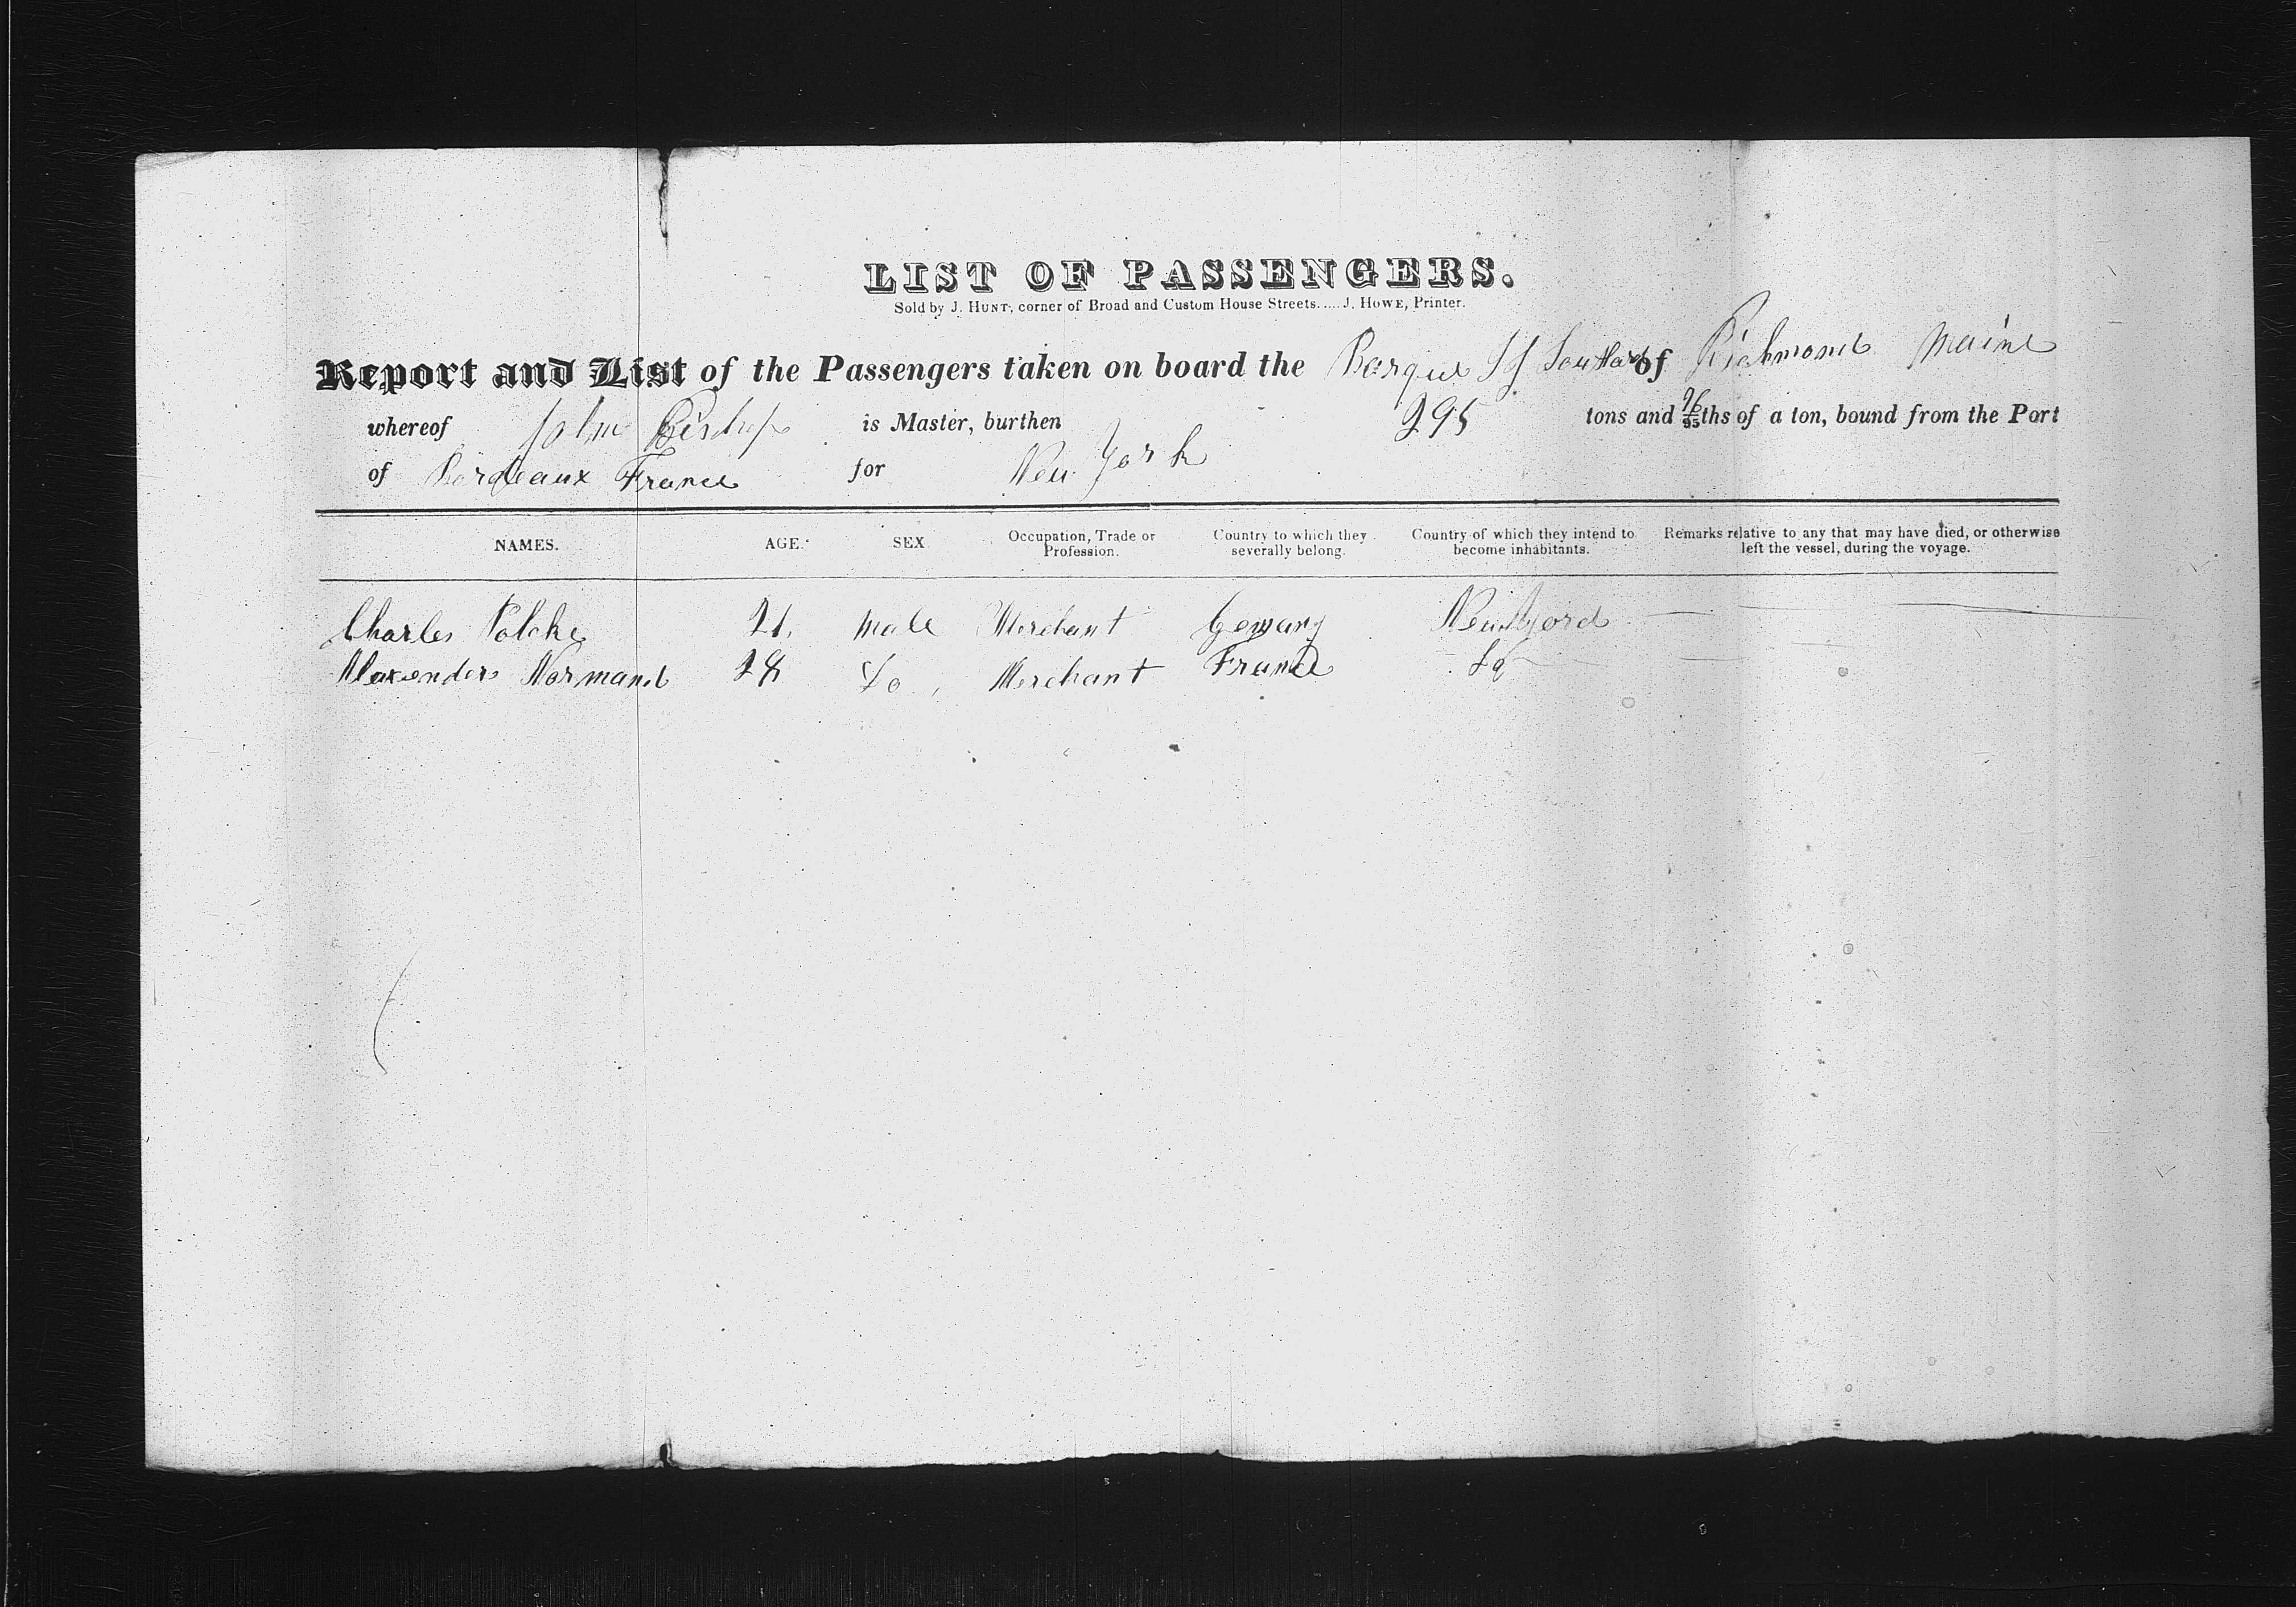 LIST OF PASSENGERS.
Sold by J. HUNT, corner of Broad and Custom House Streets.....J. HOWE, Printer.
Report and List of the Passengers taken on board the Barque of Richmond Maine
whereof John Bishop is Master, burthen 295 tons and 76/95ths of a ton, bound from the Port
of Bordeaux France for New York
NAMES. AGE. SEX Occupation, Trade or Profession. Country to which they severally belong. Country of which they intend to become inhabitants. Remarks relative to any that may have died, or otherwise left the vessel, during the voyage.
Charles 21, male Merchant Gemany
Alaxender Normand 28 Do, Merchant France Do